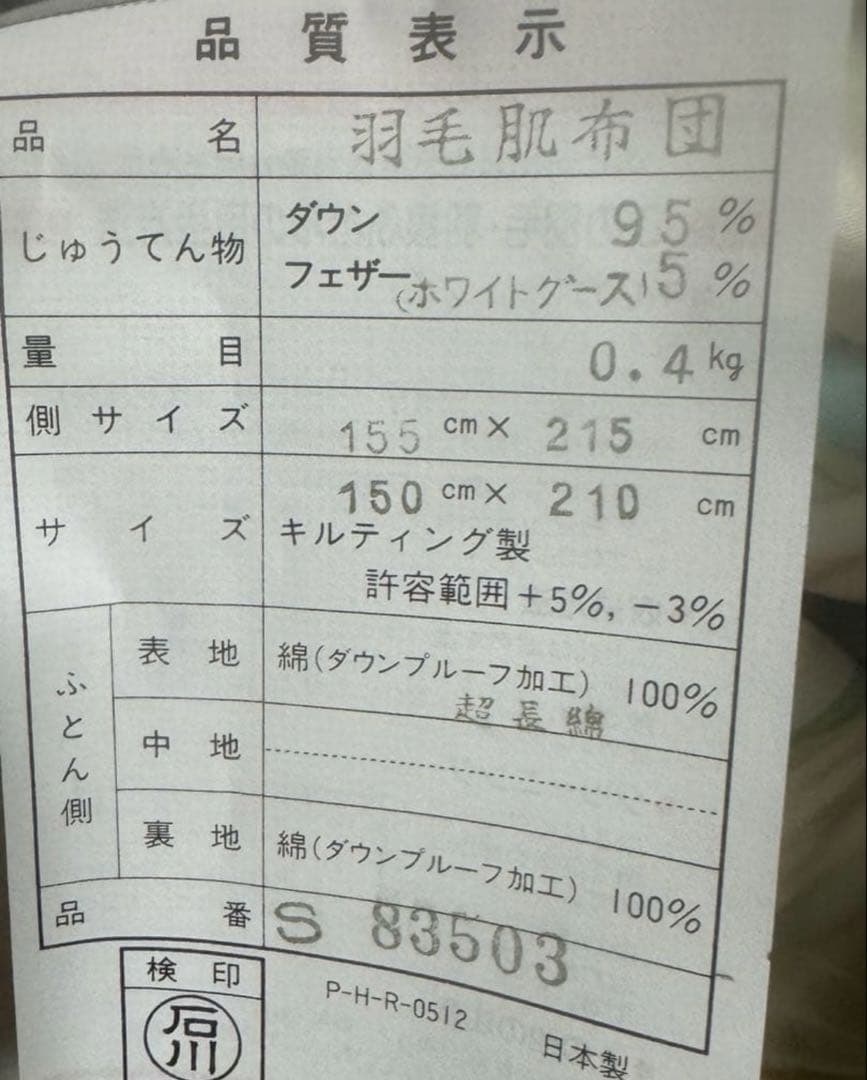 品質表示
品名 羽毛肌布団
じゅうてん物 ダウン 95%
フェザー(ホワイトグース)5%
量目 0.4kg
側サイズ 155cm×215cm
サイズ 150cm×210cm
キルティング製
許容範囲+5%,-3%
ふとん側
表地 綿(ダウンプルーフ加工) 100%
超長綿
中地
裏地 綿(ダウンプルーフ加工) 100%
品番 S 83503
検印
石川
P-H-R-0512
日本製